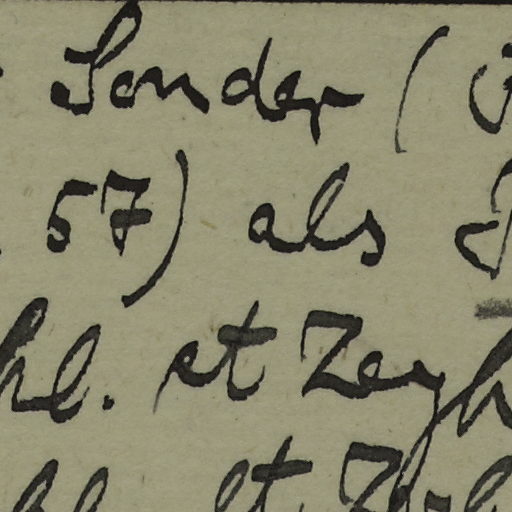 Sonder (
57) als
hl. et Zeyh
et Zeyh